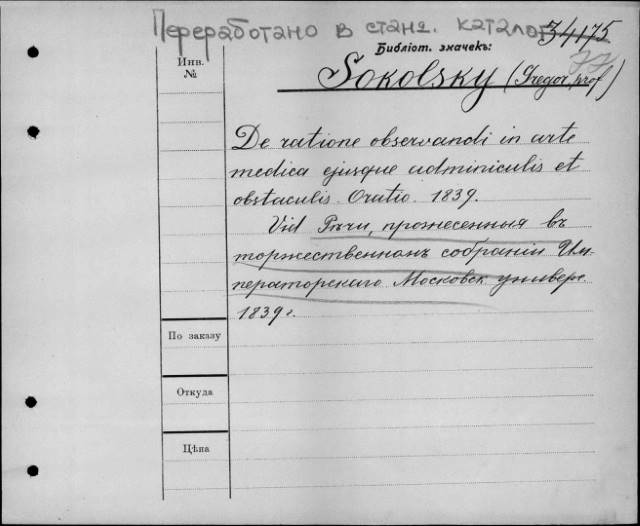 Переработано в станд. каталог
34175
Библіот. значекъ:
Инв.
№
Sokolsky (Gregor, prof)
De ratione observandi in arte
medica ejusque adminiculis et
obstaculis. Oratio. 1839.
Vid Рѣчи, произнесенныя въ
торжественномъ собраніи Им-
ператорскаго Московск. универс.
1839 г.
По заказу
Откуда
Цѣна